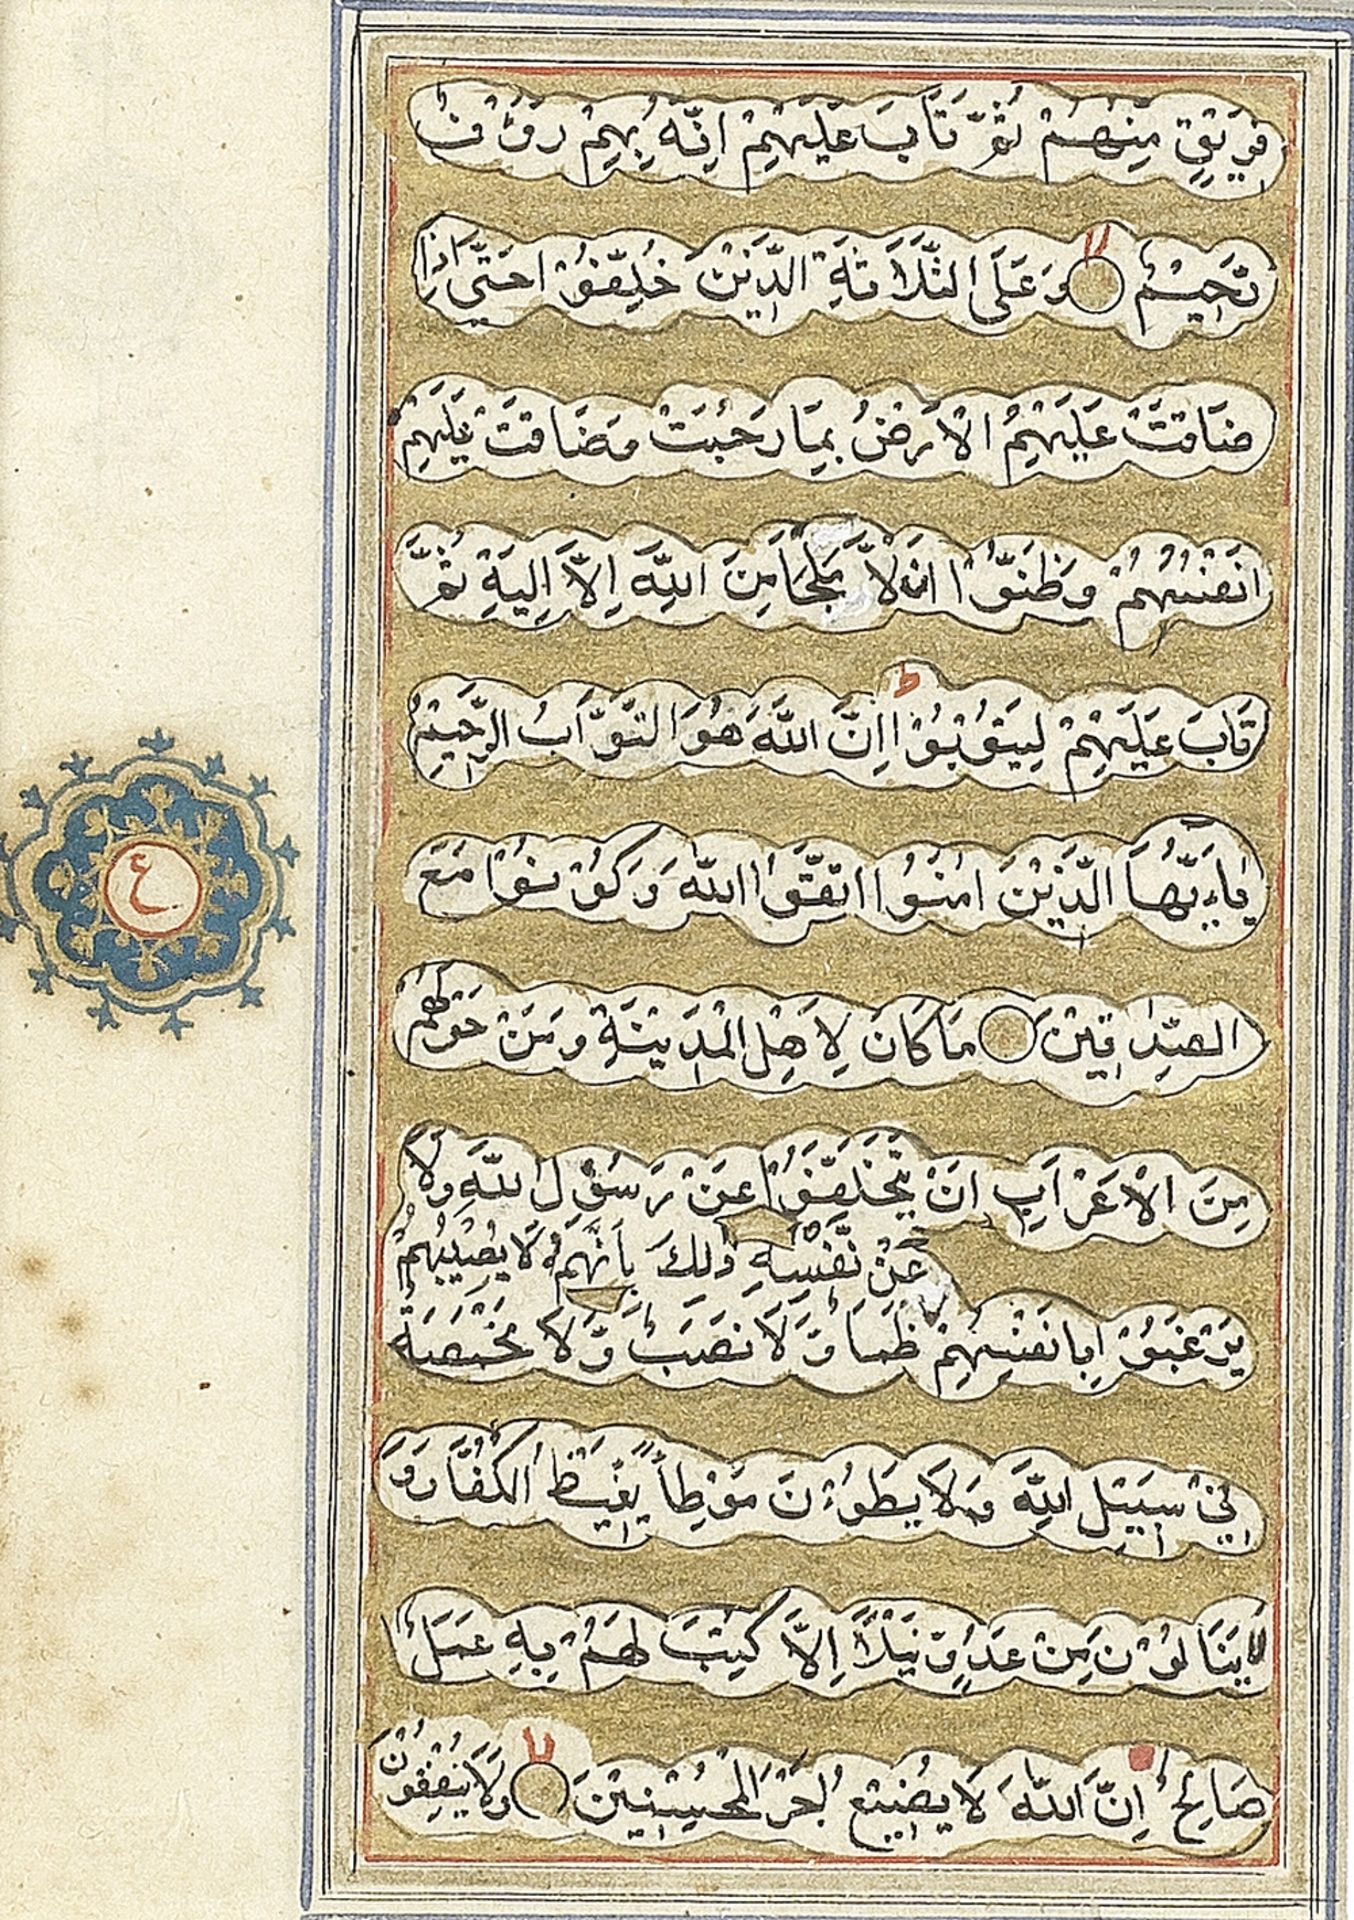 فَرِيْقٍ مِّنْهُمْ ثُمَّ تَابَ عَلَيْهِمْ اِنَّهُ بِهِمْ رَؤُفٌ
رَّحِيْمٌ وَّعَلَى الثَّلَاثَةِ الَّذِيْنَ خُلِّفُوْا حَتَّى اِذَا
ضَاقَتْ عَلَيْهِمُ الْاَرْضُ بِمَا رَحُبَتْ وَضَاقَتْ عَلَيْهِمْ
اَنْفُسُهُمْ وَظَنُّوْا اَنْ لَّا مَلْجَاَ مِنَ اللّٰهِ اِلَّا اِلَيْهِ ثُمَّ
تَابَ عَلَيْهِمْ لِيَتُوْبُوْا ط اِنَّ اللّٰهَ هُوَ التَّوَّابُ الرَّحِيْمُ
ع
يٰاَيُّهَا الَّذِيْنَ اٰمَنُوا اتَّقُوا اللّٰهَ وَكُوْنُوْا مَعَ
الصّٰدِقِيْنَ مَا كَانَ لِاَهْلِ الْمَدِيْنَةِ وَمَنْ حَوْلَهُمْ
مِنَ الْاَعْرَابِ اَنْ يَّتَخَلَّفُوْا عَنْ رَسُوْلِ اللّٰهِ وَلَا
يَرْغَبُوْا بِاَنْفُسِهِمْ
عَنْ نَّفْسِهٖ ذٰلِكَ بِاَنَّهُمْ لَا يُصِيْبُهُمْ
ظَمَأٌ وَّلَا نَصَبٌ وَّلَا مَخْمَصَةٌ
فِيْ سَبِيْلِ اللّٰهِ وَلَا يَطَؤُنَ مَوْطِأً يَّغِيْظُ الْكُفَّارَ وَ
لَا يَنَالُوْنَ مِنْ عَدُوٍّ نَّيْلًا اِلَّا كُتِبَ لَهُمْ بِهٖ عَمَلٌ
صَالِحٌ اِنَّ اللّٰهَ لَا يُضِيْعُ اَجْرَ الْمُحْسِنِيْنَ لا وَلَا يُنْفِقُوْنَ